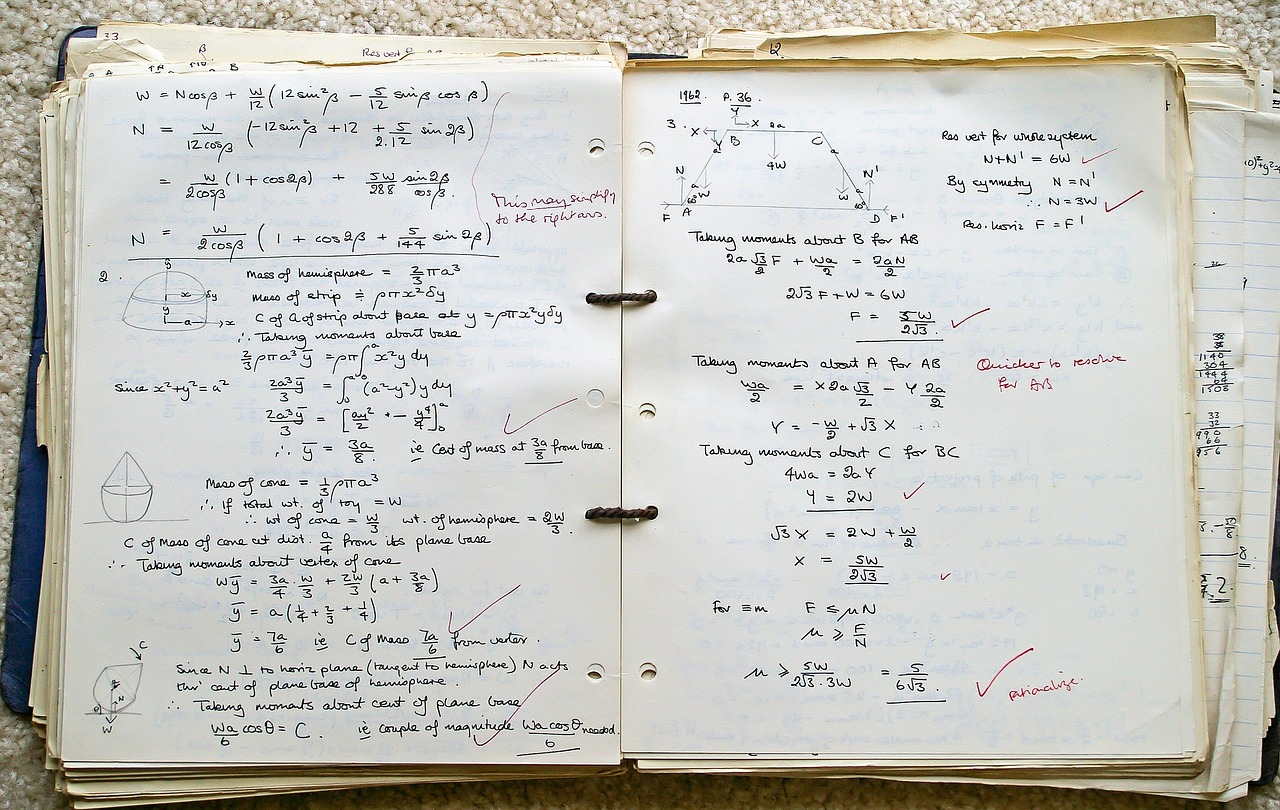 33.
β
Res vert
W = Ncosβ + W/12 (12sin²β − 5/12 sinβ cosβ)
N = W/12cosβ (−12sin²β + 12 + 5/2.12 sin2β)
= W/2cosβ (1 + cos2β) + 5W/288 sin2β/cosβ.
This may simplify
to the right ans.
N = W/2cosβ (1 + cos2β + 5/144 sin2β)
2.
y
x δy
y
a x
Mass of hemisphere = 2/3 πa³
Mass of strip ≑ ρπx²δy
C of G of strip about base at y = ρπx²yδy
∴ Taking moments about base
2/3 ρπa³ȳ = ρπ∫₀ᵃ x²y dy
Since x²+y²=a² 2a³ȳ/3 = ∫₀ᵃ (a²−y²)y dy
2a³ȳ/3 = [ay²/2 − y⁴/4]₀ᵃ
∴ ȳ = 3a/8 ie Cent of mass at 3a/8 from base.
Mass of cone = 1/3 ρπa³
∴ If total wt. of toy = W
∴ wt of cone = W/3 wt. of hemisphere = 2W/3.
C of Mass of cone at dist. a/4 from its plane base
∴ Taking moments about vertex of cone
Wȳ = 3a/4 . W/3 + 2W/3 (a + 3a/8)
ȳ = a(1/4 + 2/3 + 1/4)
ȳ = 7a/6 ie C of Mass 7a/6 from vertex.
C
θ N
W
Since N ⊥ to horiz plane (tangent to hemisphere) N acts
thro' cent of plane base of hemisphere.
∴ Taking moments about cent of plane base
Wa/6 cosθ = C. ie couple of magnitude Wa cosθ/6 needed.
62.
1962. P. 36.
3.
Y
X X 2a
Y B C
a a
4W
N N'
a W W a
60° 60°
F A D F'
Res vert for whole system
N+N' = 6W
By symmetry N = N'
∴ N = 3W
Res. horiz F = F'
Taking moments about B for AB
2a √3/2 F + Wa/2 = 2aN/2
2√3 F + W = 6W
F = 5W/2√3.
Taking moments about A for AB
Quicker to resolve
for AB
Wa/2 = X 2a √3/2 − Y 2a/2
Y = −W/2 + √3 X
Taking moments about C for BC
4Wa = 2aY
Y = 2W
√3 X = 2W + W/2
X = 5W/2√3
For ≡m F ≤ μN
μ ≥ F/N
μ ≥ 5W/2√3.3W = 5/6√3.
rationalize.
38
38
1140
304
1444
64
1508
33
32
990
66